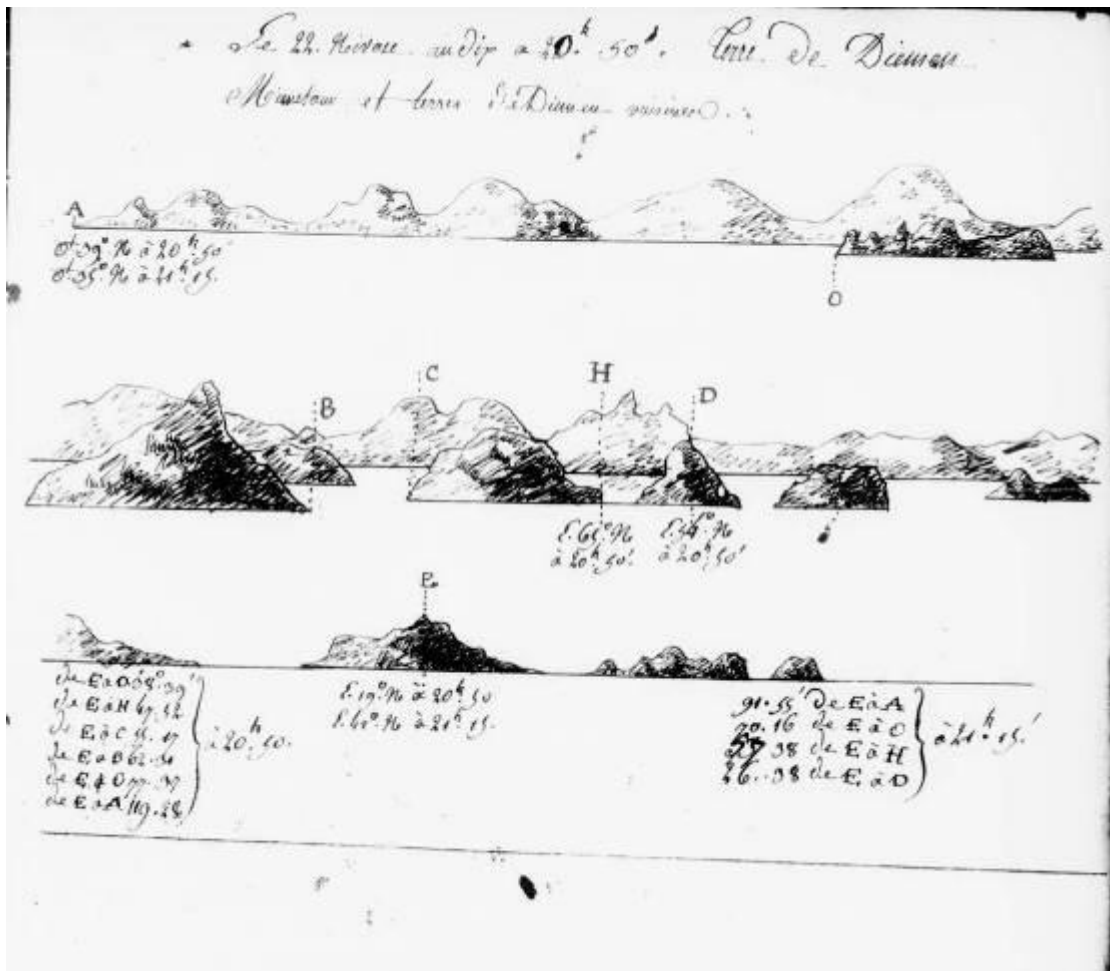 Le 22. Nivose au dix a 20.h 50'. Terre de Diemen
et terres de Diemen
A
O. 39° N à 20h 50'
O. 35° N à 21h 15.
O
B
C
H
D
E. 65° N
à 20h 50'.
E. 54° N
à 20h 50'
E
de E à D 38°. 39'
de E à H 47. 52
de E à C 51. 17
de E à B 62. 31
de E à O 77. 37
de E à A 119. 28
à 20h. 50.
E. 19° N à 20h 50
E. 61° N à 21h. 15.
91. 55' de E à A
70. 16 de E à O
57 38 de E à H
26. 38 de E à D
à 21h. 15.'